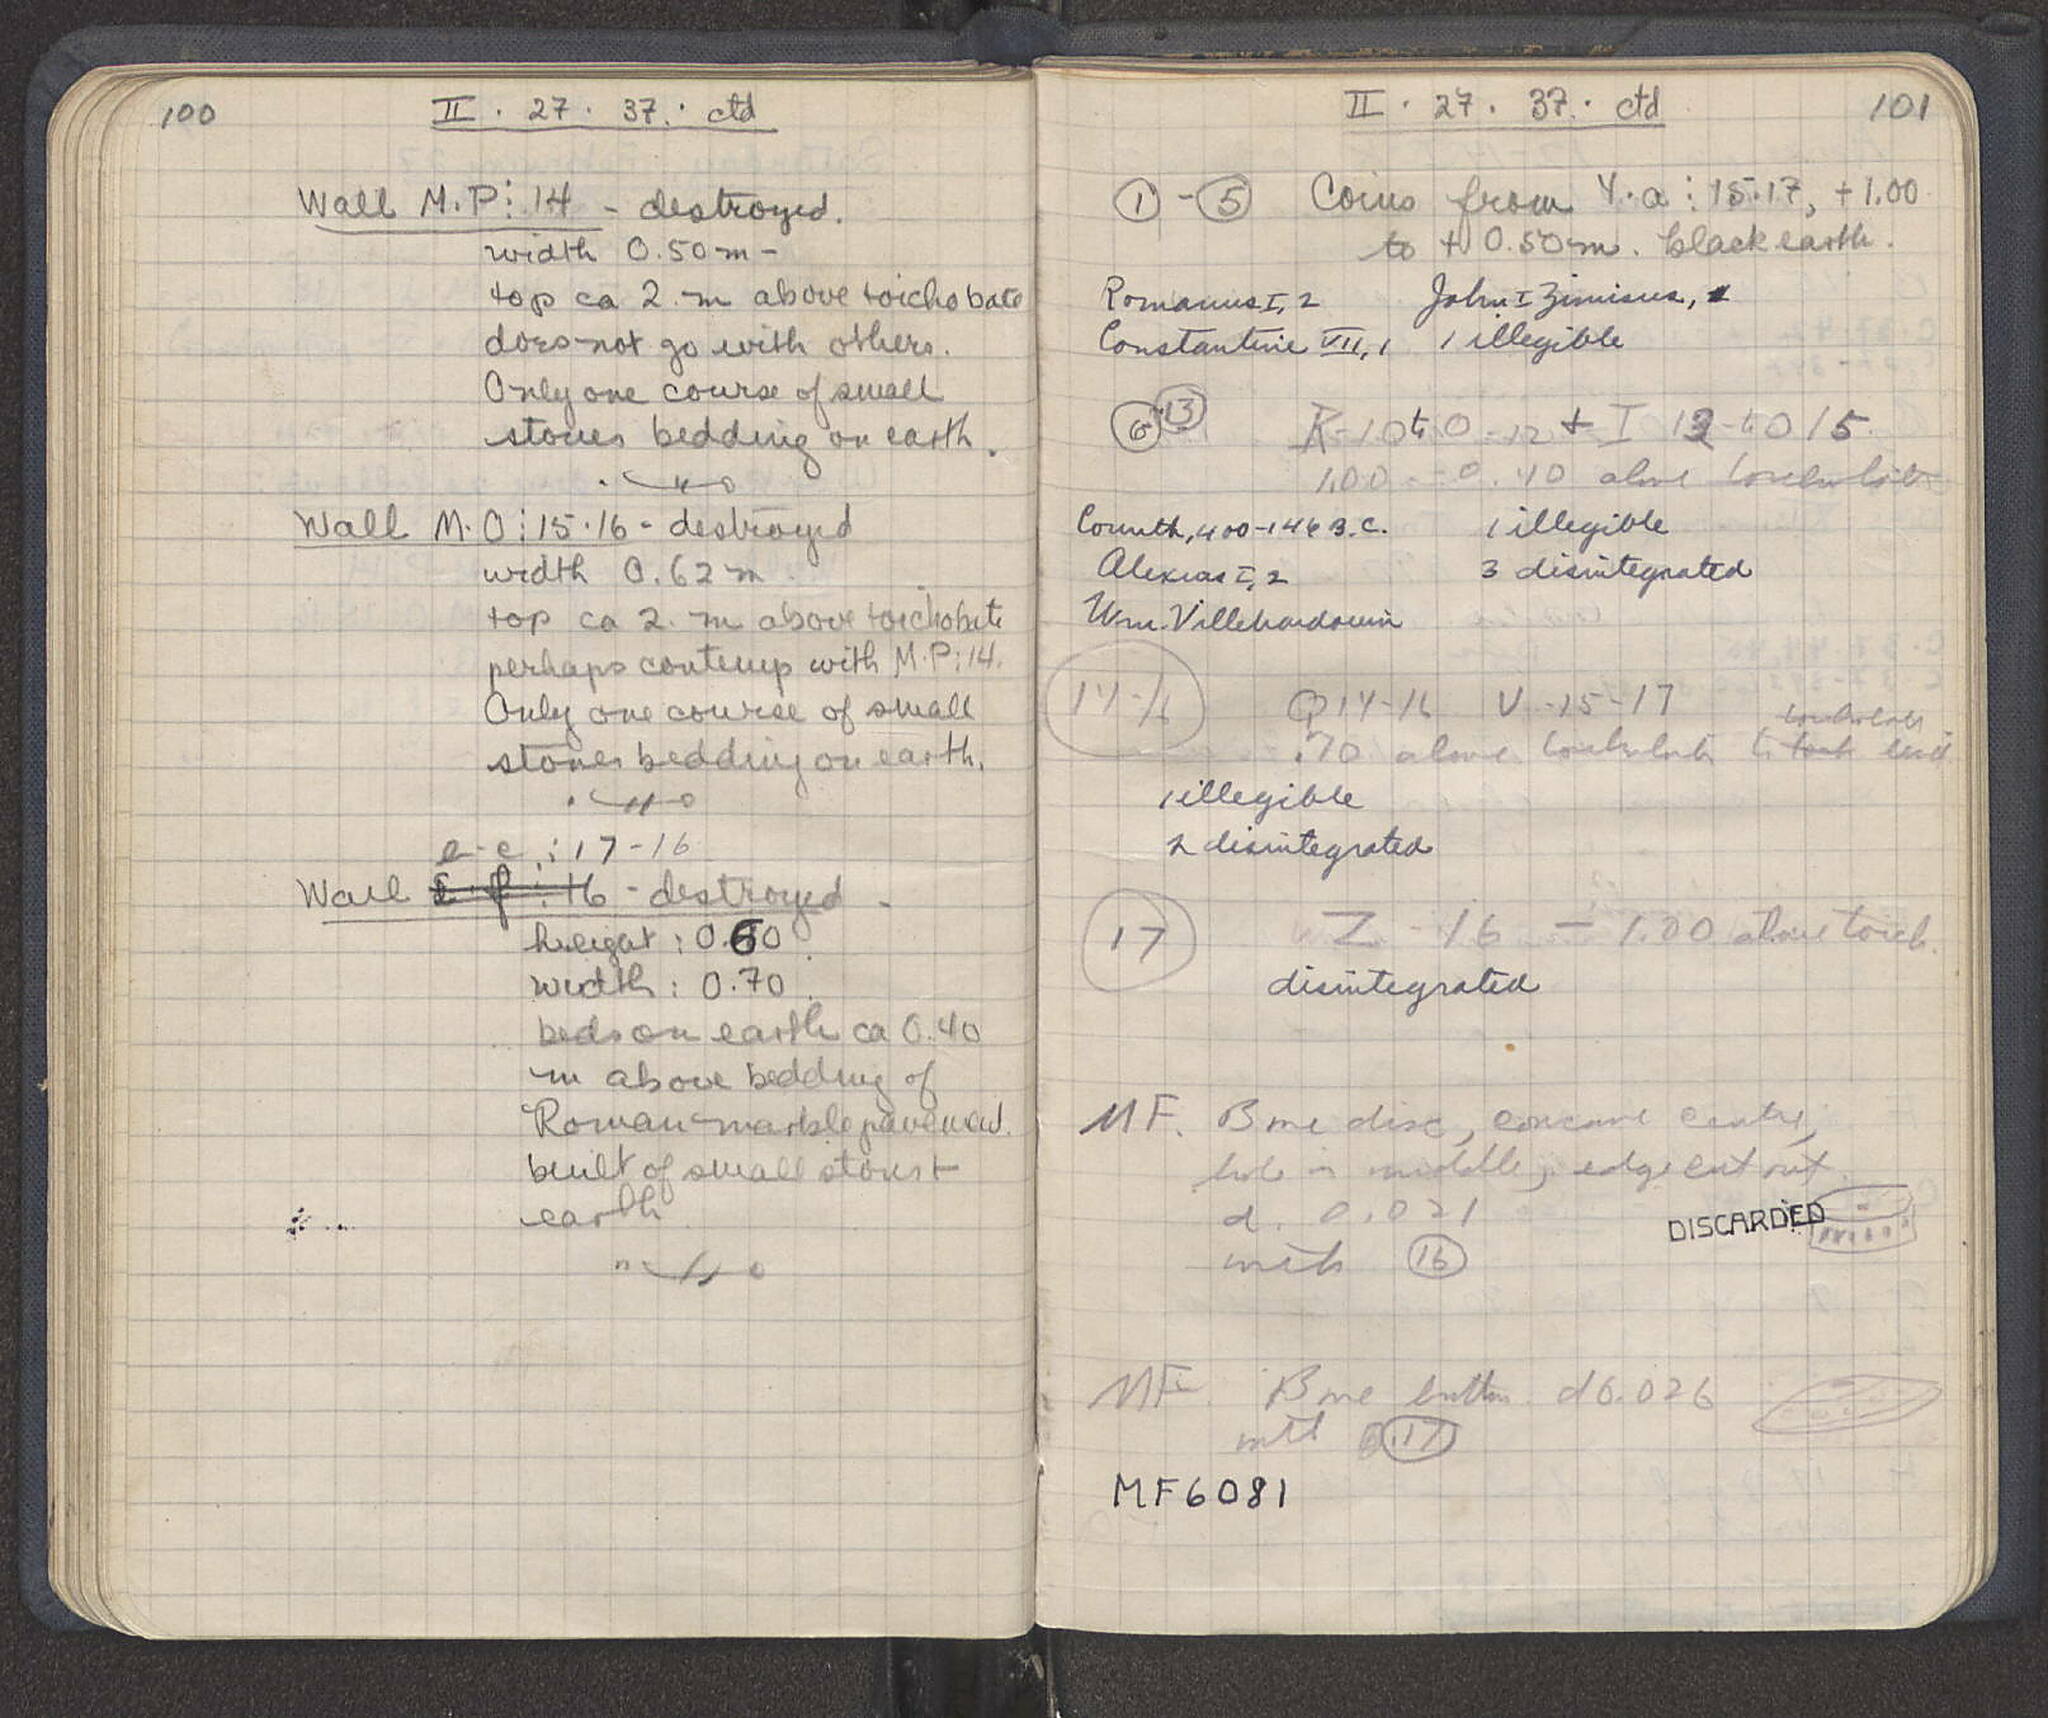 100
II . 27 . 37. ctd
Wall M.P: 14 - destroyed.
width 0.50m -
top ca 2. m above toichobate
does not go with others.
Only one course of small
stones bedding on earth.
Wall M.O: 15.16 - destroyed
width 0.62m
top ca 2. m above toichobate
perhaps contemp with M.P: 14.
Only one course of small
stones bedding on earth.
e-c: 17-16
Wall : 16 - destroyed -
height: 0.60
width: 0.70
beds on earth ca 0.40
m above bedding of
Roman marble pavement.
built of small stones +
earth
II . 27 . 37. ctd
101
1 - 5 Coins from Y.a: 15.17, +1.00
to + 0.50m. black earth.
Romanus I, 2 John I Zimisces,
Constantine VII, 1 1 illegible
6 13 K-10 to O-12 + I 13 to O 15.
1.00 - 0.40 above toichobate
Corinth, 400-146 B.C. 1 illegible
Alexius I, 2 3 disintegrated
Wm. Villehardouin
14-16 Q 14-16 V-15-17
.70 above toichobate to toichobate level
1 illegible
2 disintegrated
17 Z - 16 - 1.00 above toich.
disintegrated
MF. Bone disc, concave centre,
hole in middle, edge cut out
d. 0.021
DISCARDED
with 16
MF. Bone button. d 0.026
with 17
MF6081